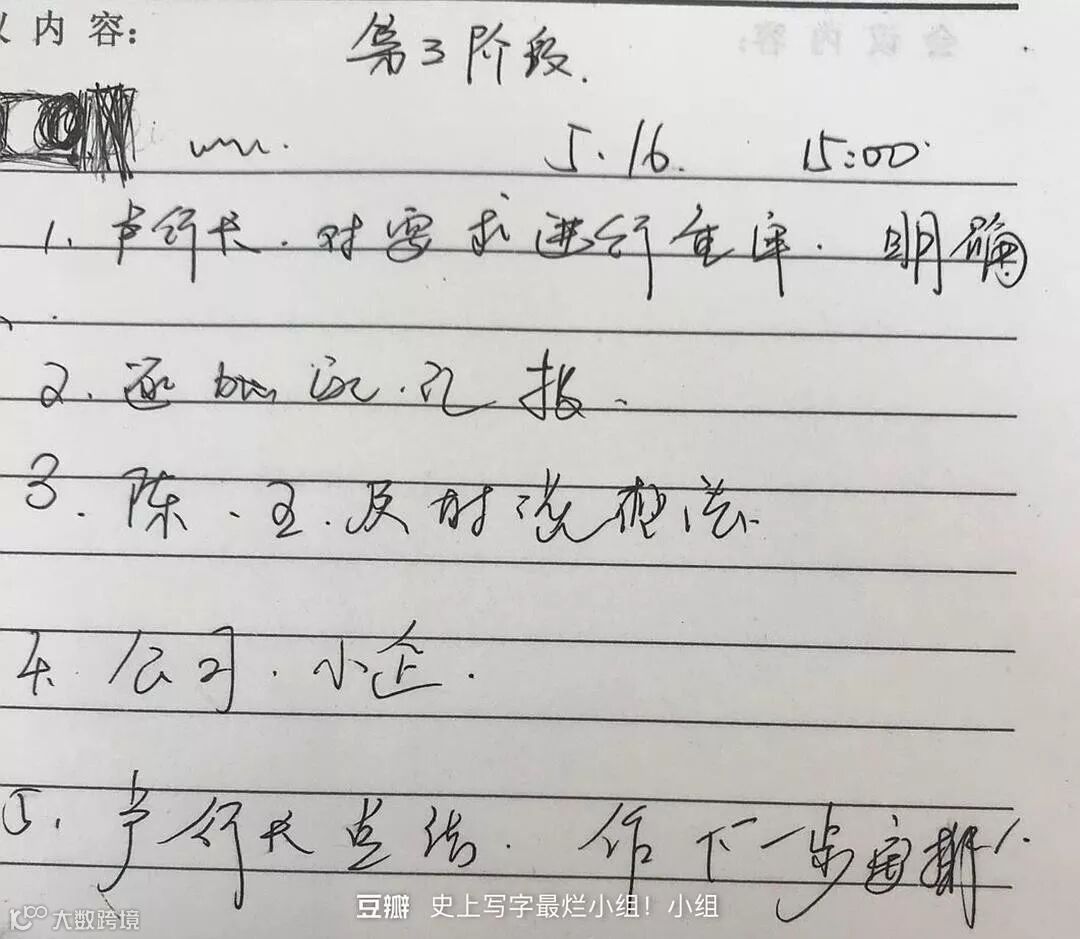 内容：
第3阶段.
5.16. 15:00
1. 卢行长. 对要求进行重审. 明确
2. 汇报.
3. 陈、王.及时说想法.
4. 公司. 小企.
5. 卢行长总结. 作下一步安排.
豆瓣 史上写字最烂小组！小组
大数跨境